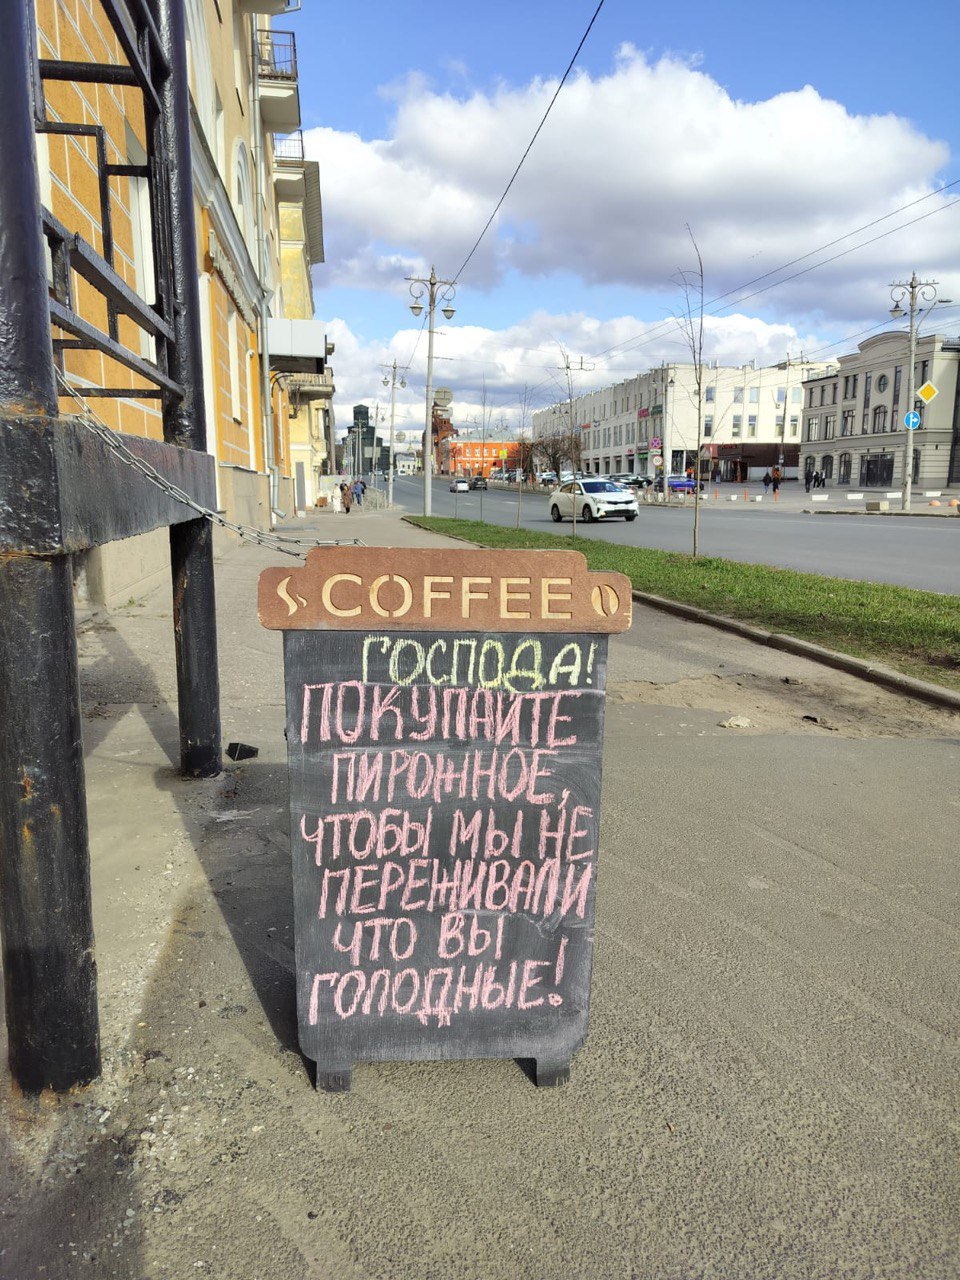 COFFEE
ГОСПОДА!
ПОКУПАЙТЕ
ПИРОЖНОЕ,
ЧТОБЫ МЫ НЕ
ПЕРЕЖИВАЛИ
ЧТО ВЫ
ГОЛОДНЫЕ!